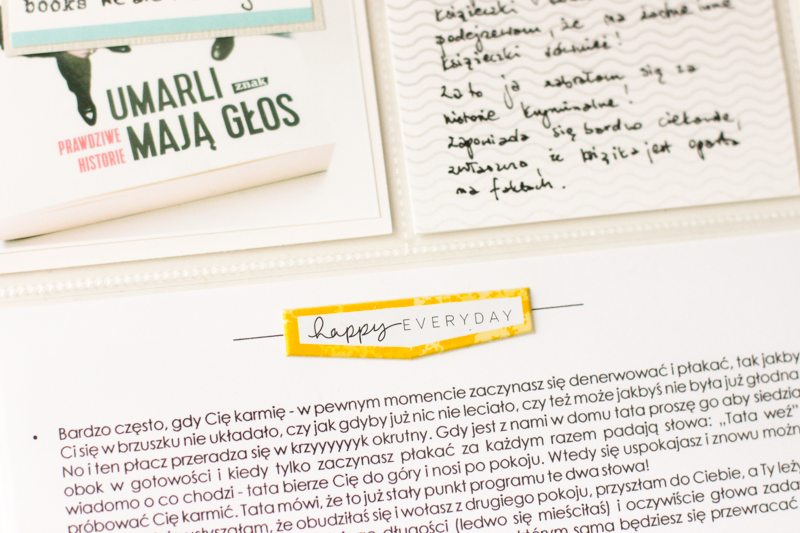 books
UMARLI
znak
MAJĄ GŁOS
PRAWDZIWE
HISTORIE
książeczki
podejrzewam, że ma żadne inne
książeczki również!
Za to ja zabrałam się za
historie kryminalne!
Zapowiada się bardzo ciekawie,
zwłaszcza, że książka jest oparta
na faktach.
happy EVERYDAY
• Bardzo często, gdy Cię karmię - w pewnym momencie zaczynasz się denerwować i płakać, tak jakby
Ci się w brzuszku nie układało, czy jak gdyby już nic nie leciało, czy też może jakbyś nie była już głodna
No i ten płacz przeradza się w krzyyyyyk okrutny. Gdy jest z nami w domu tata proszę go aby siedzia
obok w gotowości i kiedy tylko zaczynasz płakać za każdym razem padają słowa: „Tata weź"
wiadomo o co chodzi - tata bierze Cię do góry i nosi po pokoju. Wtedy się uspokajasz i znowu możn
próbować Cię karmić. Tata mówi, że to już stały punkt programu te dwa słowa!
usłyszałam, że obudziłaś się i wołasz z drugiego pokoju, przyszłam do Ciebie, a Ty leży
długości (ledwo się mieściłaś) i oczywiście głowa zada
którym sama będziesz się przewracać